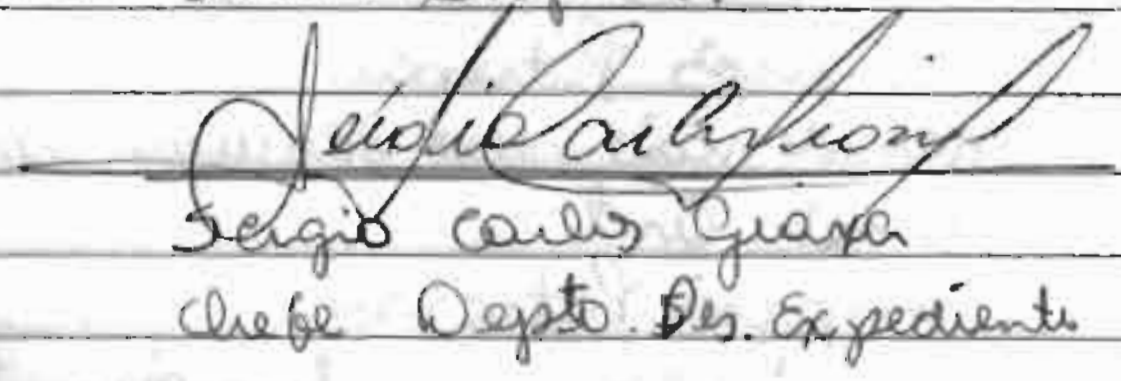 Sérgio Carlos
Sergio Carlos Graxa
Chefe Depto. Des. Expediente